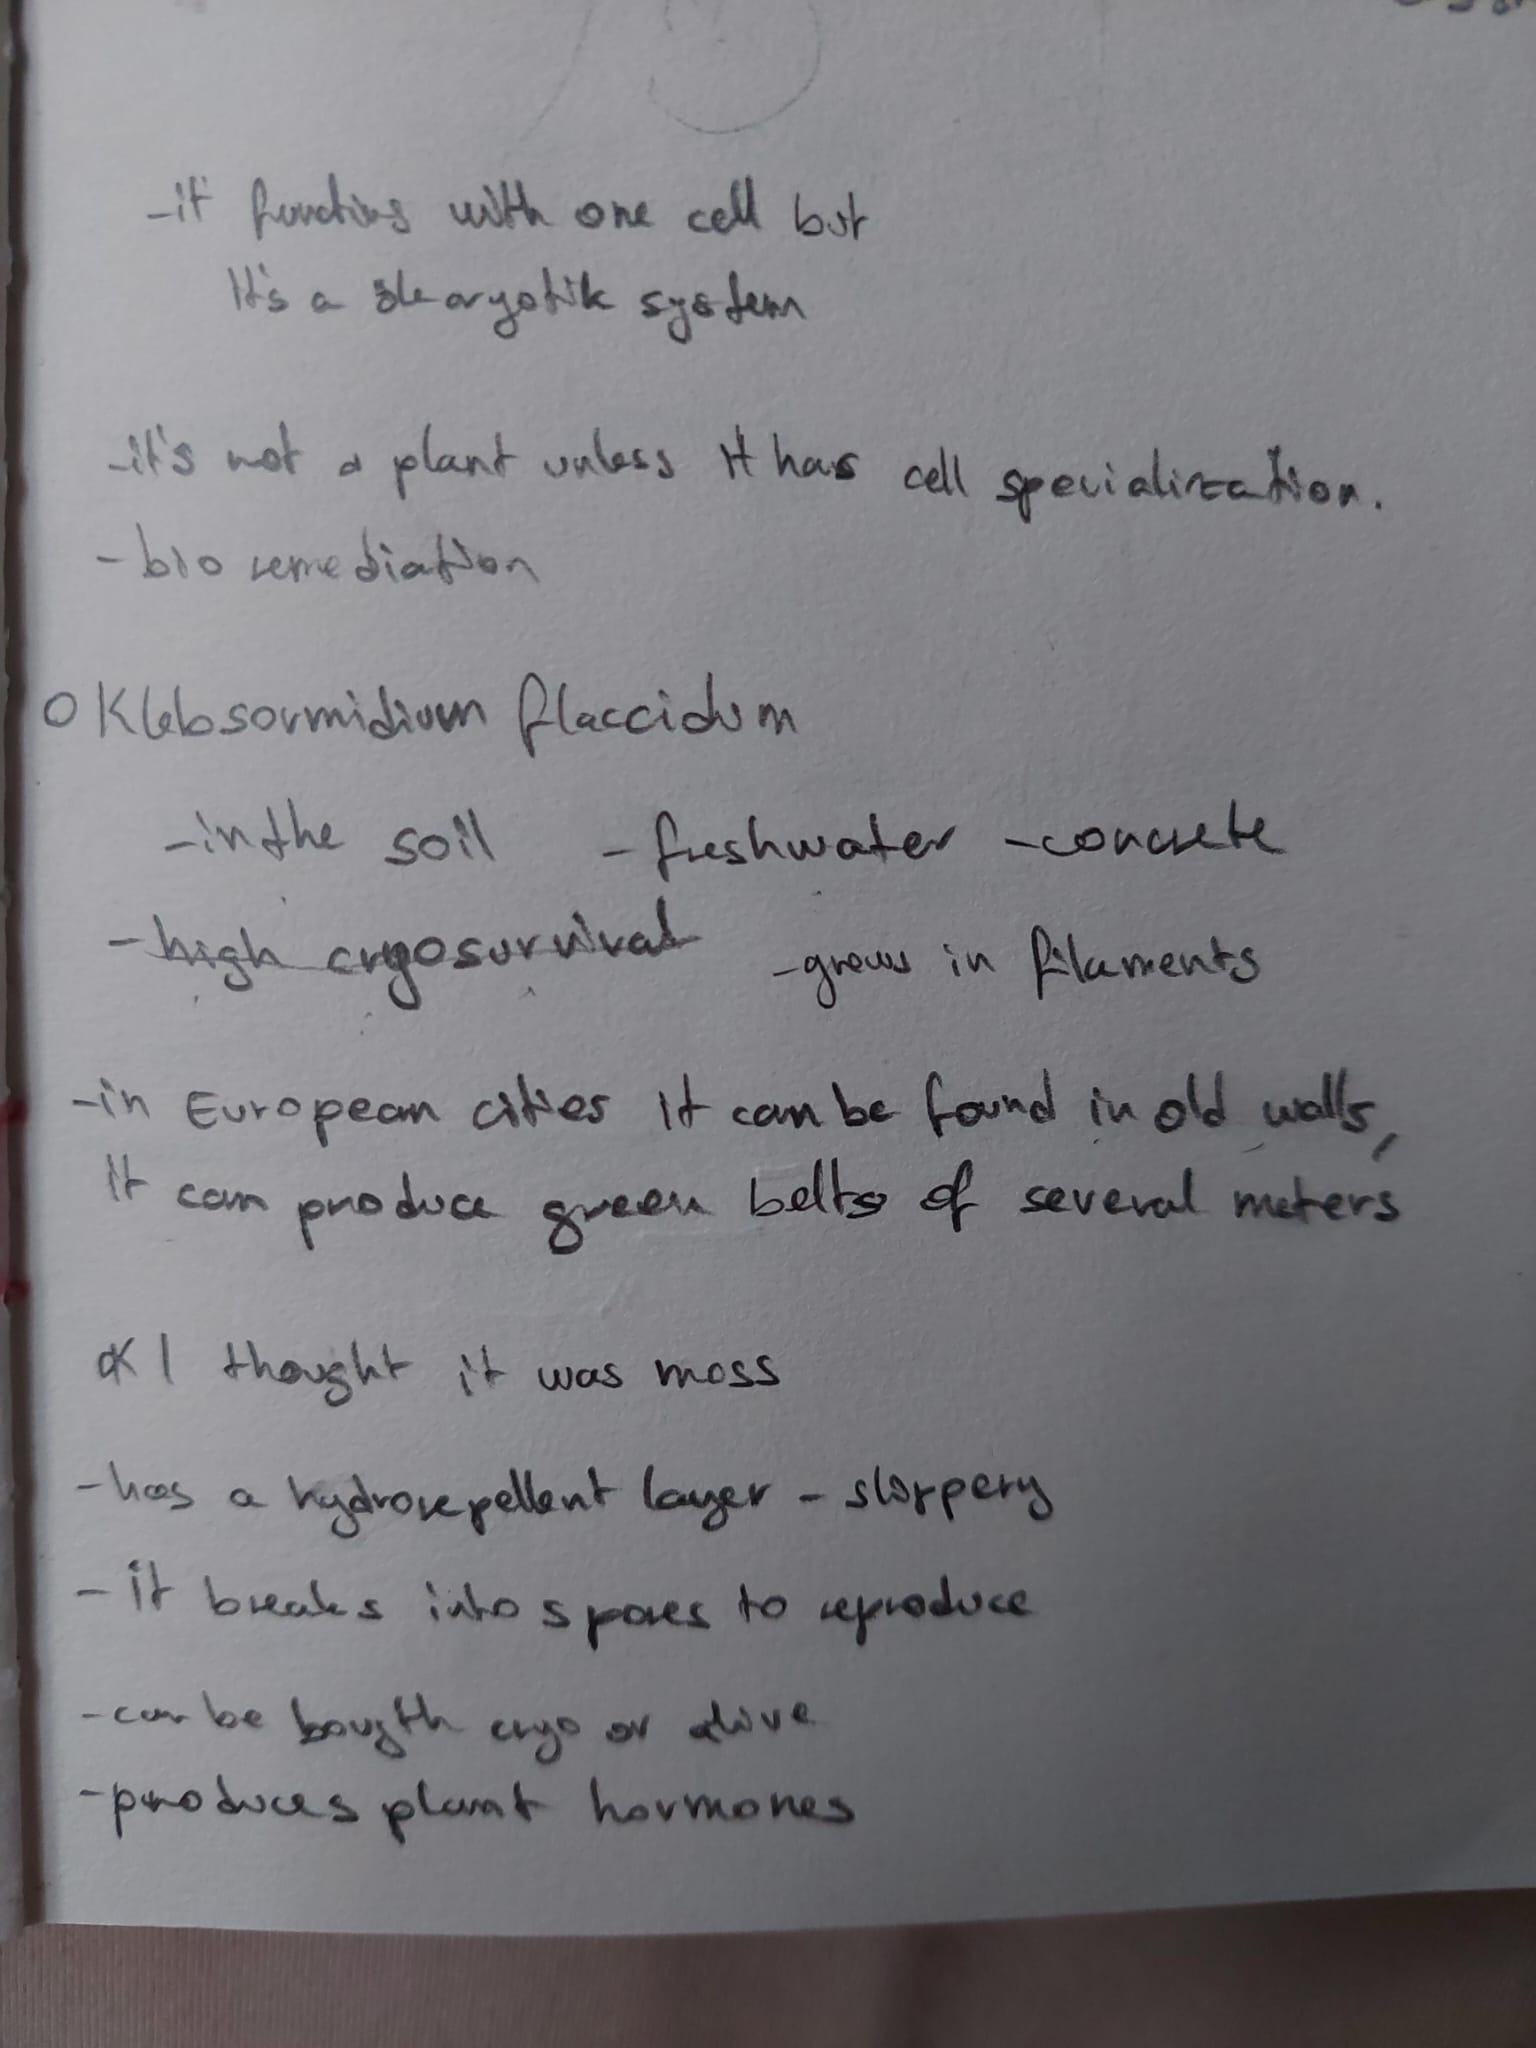 -it functins with one cell but
It's a system
-it's not a plant unless it has cell specialization.
-bio remediation
O Klebsormidium flaccidum
-in the soil -freshwater -concrete
-high cryosurvival -grows in filaments
-in European cities it can be found in old walls,
it can produce green belts of several meters
I thought it was moss
-has a hydrorepellent layer - slippery
- it breaks into spores to reproduce
-can be bougth cryo or alive
-produces plant hormones